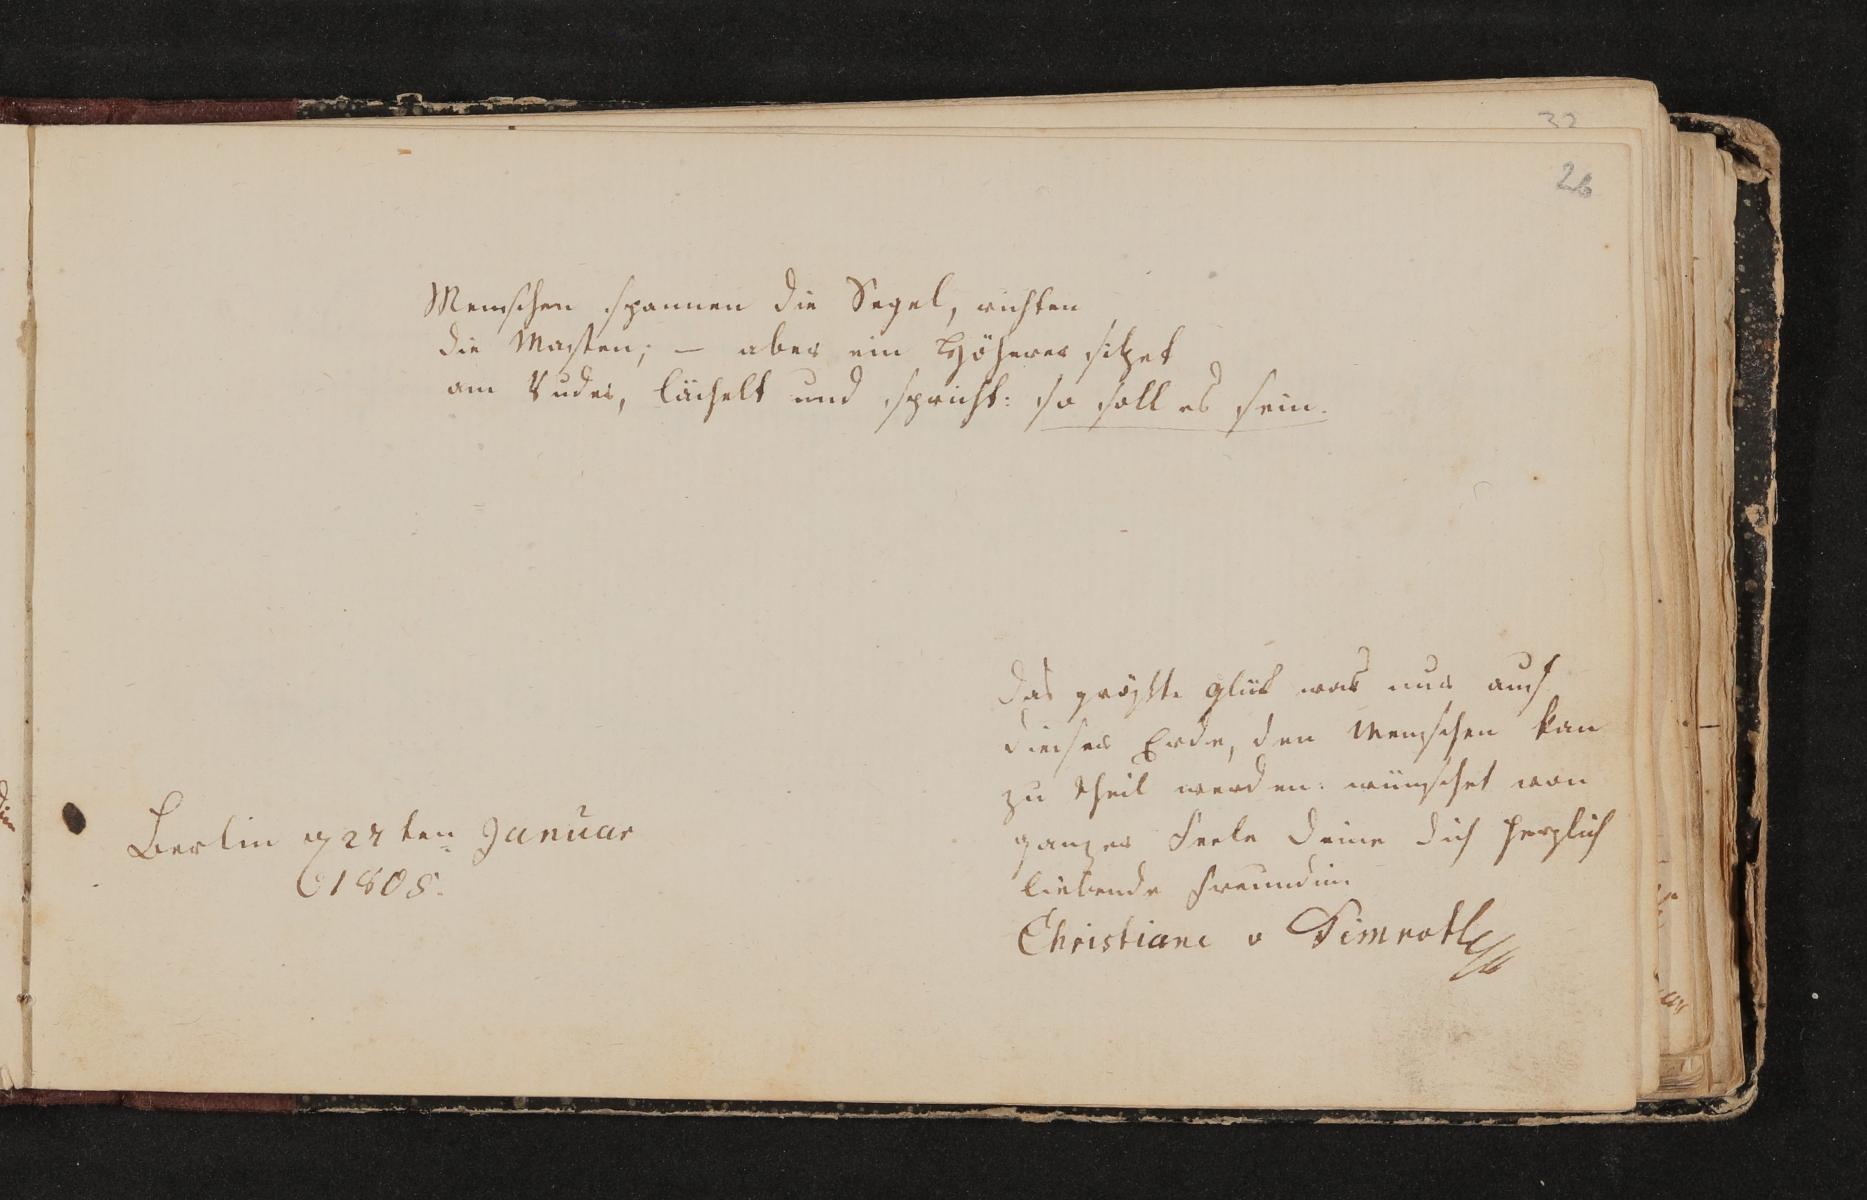 32
26
Menschen spannen die Segel, richten
die Masten; — aber ein Höherer sitzet
am Ruder, lächelt und spricht: so soll es sein.
Das größte Glük was nur auf
dieser Erde, den Menschen kan
zu theil werden: wünschet von
ganzer Seele Deine Dich herzlich
liebende Freundin
Christiane v
Berlin ten Januar
1808.